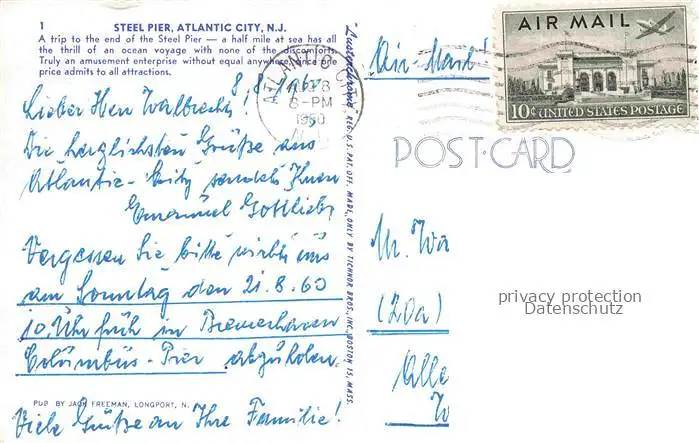 1
STEEL PIER, ATLANTIC CITY, N.J.
A trip to the end of the Steel Pier — a half mile at sea has all
the thrill of an ocean voyage with none of the discomforts.
Truly an amusement enterprise without equal anywhere, once one
price admits to all attractions.
8.8.1960
Lieber Herr Walbrecht!
Die herzlichsten Grüße aus
Atlantic-City sendet Ihnen
Emanuel Gottlieb
Vergessen Sie bitte nicht uns
am Sonntag den 21.8.60
10.Uhr früh in Bremerhaven
Columbus-Pier abzuholen.
PUB BY JACK FREEMAN, LONGPORT, N.
Viele Grüße an Ihre Familie!
"Lusterchrome" REG. U.S. PAT. OFF. MADE ONLY BY TICHNOR BROS., INC., BOSTON 15, MASS.
ATLANTIC C
8-PM
1960
Air-Mail!
AIR MAIL
10¢ UNITED STATES POSTAGE
POST-CARD
Mr. Wa
(20a)
Alle
privacy protection
Datenschutz